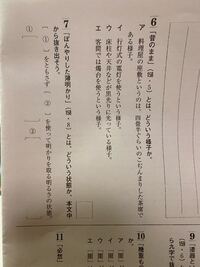 6 「昔のまま」(・5)とは、どういう様子か。
ア 料理屋の座敷というのは、四畳半ぐらいのこぢんまりした茶席で
ある様子。
イ 行灯式の電灯を使うという様子。
ウ 床柱や天井などが黒光りに光っている様子。
エ 客間では燭台を使うという様子。
7 「ぼんやりした薄明かり」(・8)とは、どういう状態か。本文中
から抜き出そう。
〔①〕をともさず〔②〕を使って明かりを取る明るさの状態。
①〔
②〔
9 「漆器と
ら九字で抜
10 「幾重も
ア
イ
ウ
エ
11 「必然」